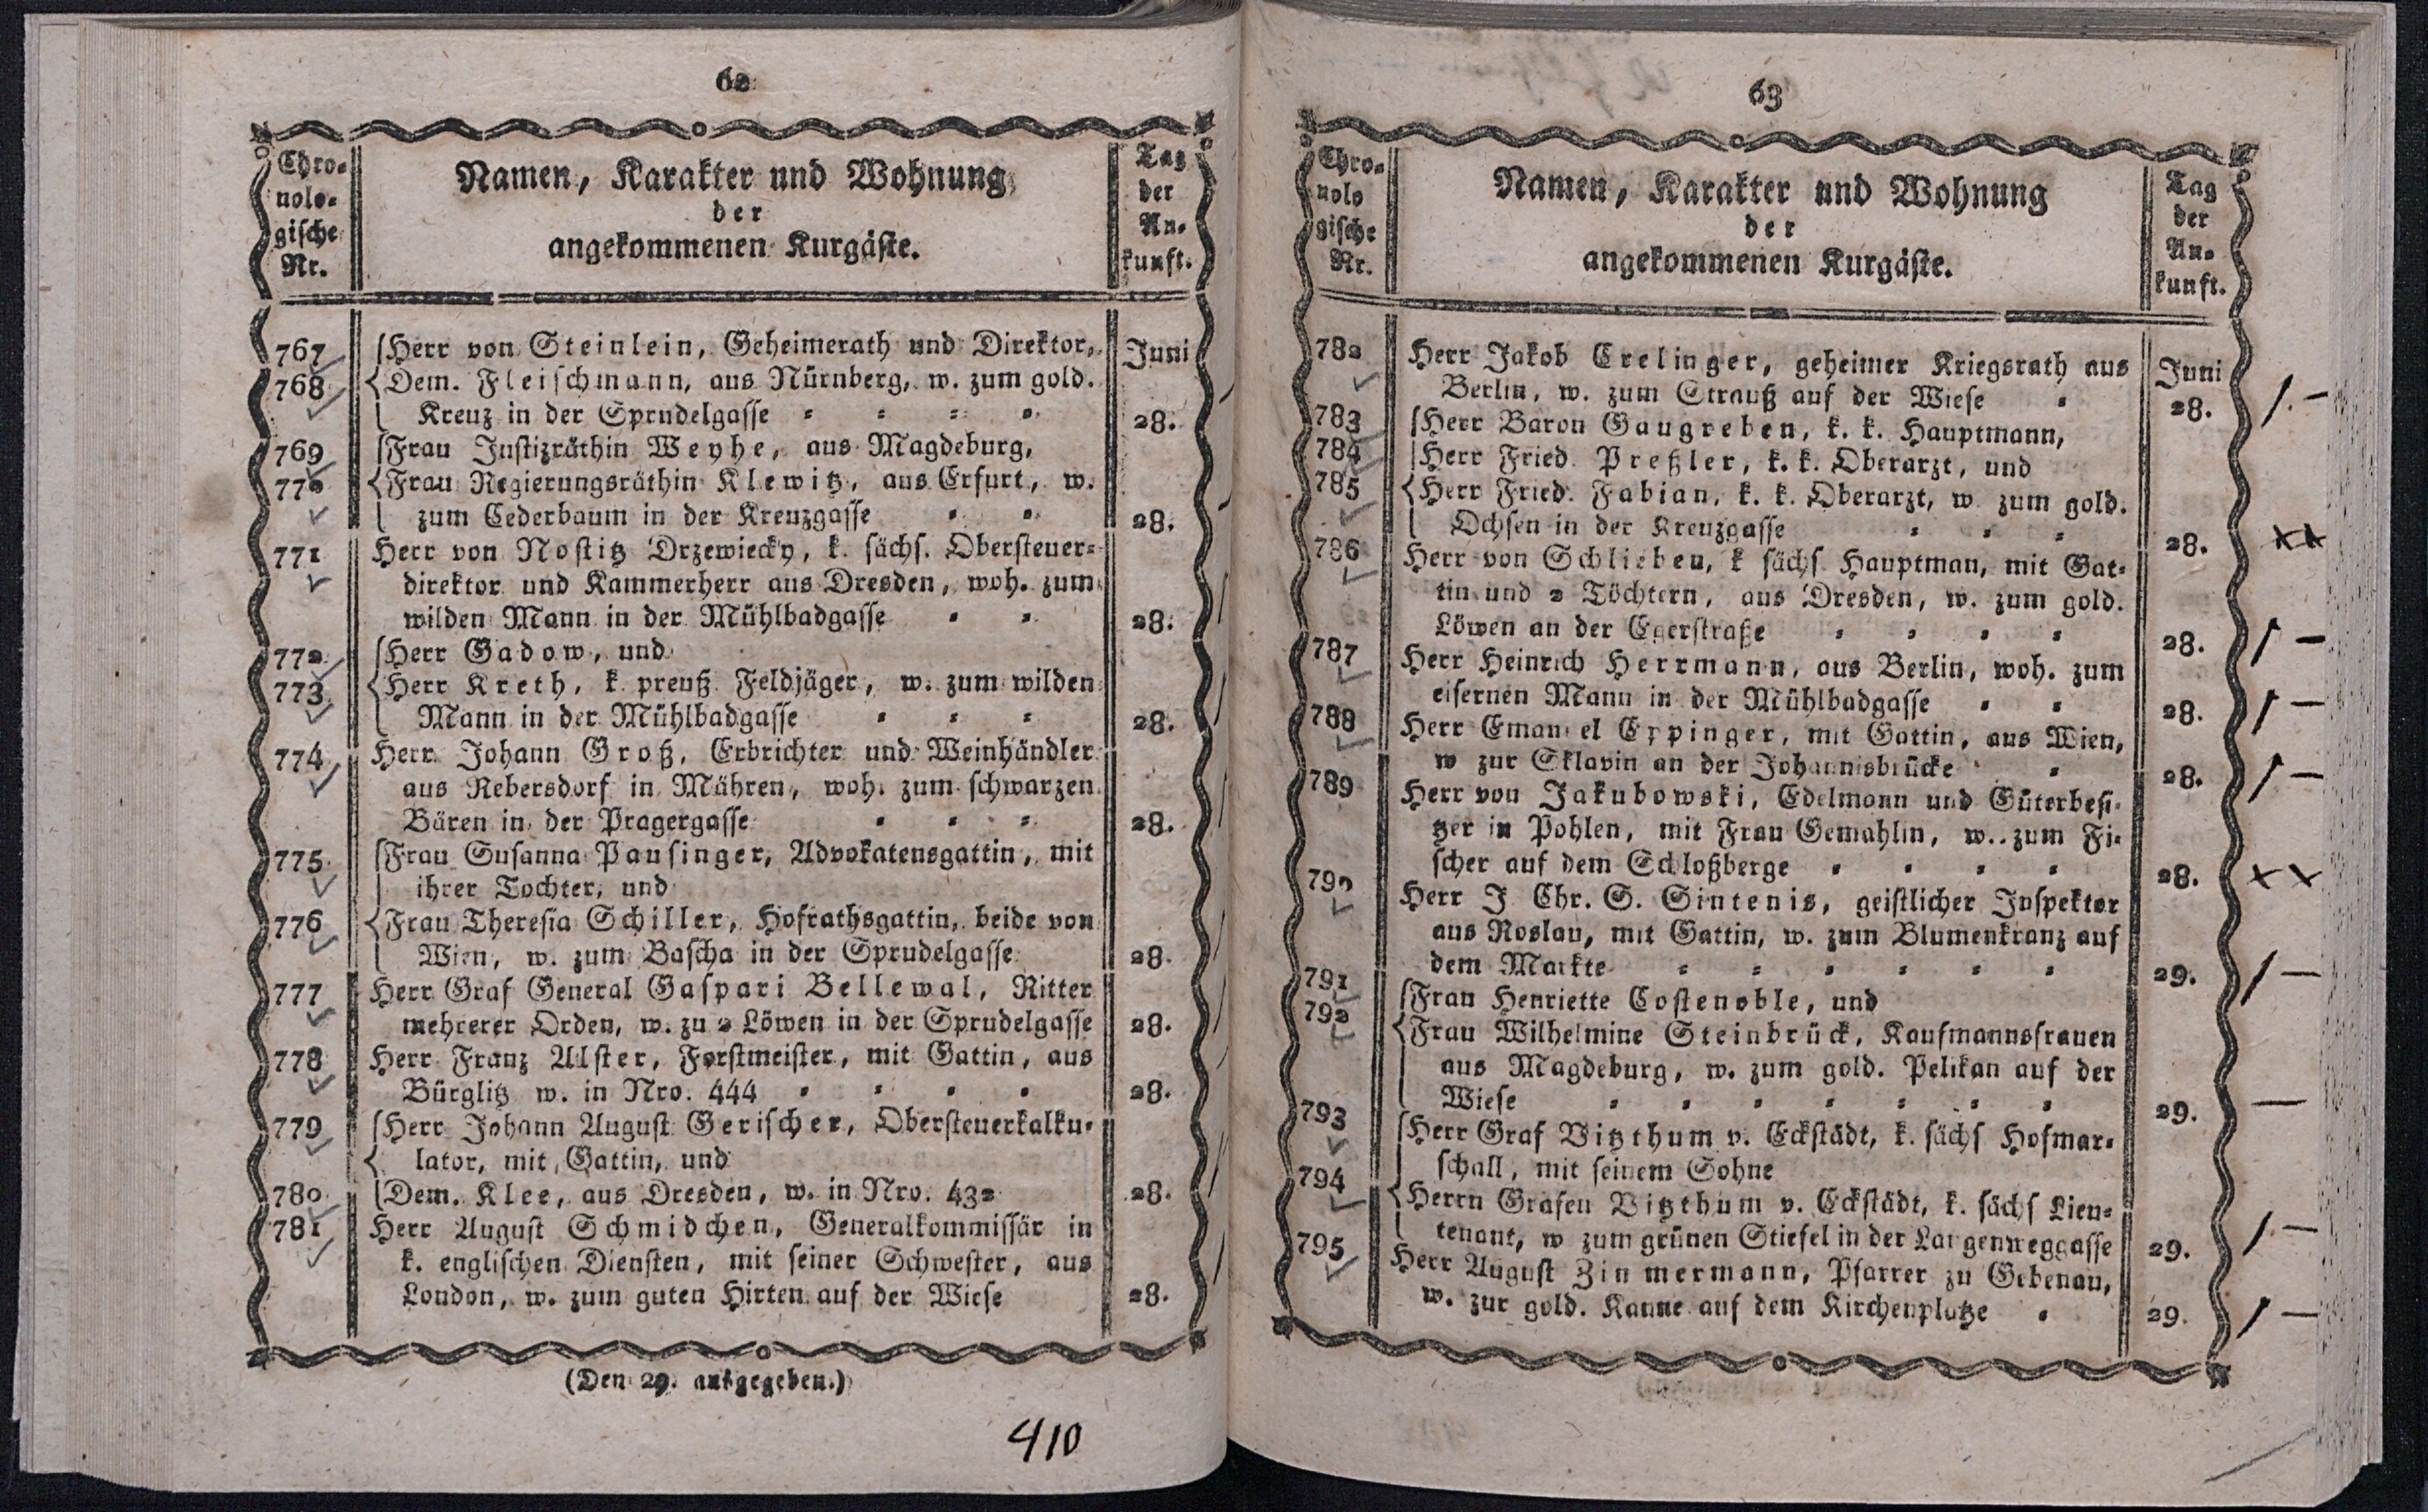 62
Chro-
nolo-
gische
Nr.
Namen, Karakter und Wohnung
der
angekommenen Kurgäste.
Tag
der
An-
kunft.
767 Herr von Steinlein, Geheimerath und Direktor, Juni
768 Dem. Fleischmann, aus Nürnberg, w. zum gold.
Kreuz in der Sprudelgasse 28.
769 Frau Justizräthin Weyhe, aus Magdeburg,
770 Frau Regierungsräthin Klewitz, aus Erfurt, w.
zum Cederbaum in der Kreuzgasse 28.
771 Herr von Nostitz Drzewiecky, k. sächs. Obersteuer-
direktor und Kammerherr aus Dresden, woh. zum
wilden Mann in der Mühlbadgasse 28.
772 Herr Gadow, und
773 Herr Kreth, k. preuß. Feldjäger, w. zum wilden
Mann in der Mühlbadgasse 28.
774 Herr Johann Groß, Erbrichter und Weinhändler
aus Rebersdorf in Mähren, woh. zum schwarzen
Bären in der Pragergasse 28.
775 Frau Susanna Pausinger, Advokatensgattin, mit
ihrer Tochter, und
776 Frau Theresia Schiller, Hofrathsgattin, beide von
Wien, w. zum Bascha in der Sprudelgasse 28.
777 Herr Graf General Gaspari Bellewal, Ritter
mehrerer Orden, w. zu 2 Löwen in der Sprudelgasse 28.
778 Herr Franz Alster, Forstmeister, mit Gattin, aus
Bürglitz w. in Nro. 444 28.
779 Herr Johann August Gerischer, Obersteuerkalku-
lator, mit Gattin, und
780 Dem. Klee, aus Dresden, w. in Nro. 432 28.
781 Herr August Schmidchen, Generalkommissär in
k. englischen Diensten, mit seiner Schwester, aus
London, w. zum guten Hirten auf der Wiese 28.
(Den 29. ausgegeben.)
410
63
Chro-
nolo
gische
Nr.
Namen, Karakter und Wohnung
der
angekommenen Kurgäste.
Tag
der
An-
kunft.
782 Herr Jakob Crelinger, geheimer Kriegsrath aus Juni
Berlin, w. zum Strauß auf der Wiese 28.
783 Herr Baron Gaugreben, k. k. Hauptmann,
784 Herr Fried. Preßler, k. k. Oberarzt, und
785 Herr Fried. Fabian, k. k. Oberarzt, w. zum gold.
Ochsen in der Kreuzgasse 28.
786 Herr von Schlieben, k sächs. Hauptman, mit Gat-
tin und 2 Töchtern, aus Dresden, w. zum gold.
Löwen an der Egerstraße 28.
787 Herr Heinrich Herrmann, aus Berlin, woh. zum
eisernen Mann in der Mühlbadgasse 28.
788 Herr Emanuel Eppinger, mit Gattin, aus Wien,
w zur Sklavin an der Johannisbrücke 28.
789 Herr von Jakubowski, Edelmann und Güterbesi-
tzer in Pohlen, mit Frau Gemahlin, w. zum Fi-
scher auf dem Schloßberge 28.
790 Herr J Chr. S. Sintenis, geistlicher Inspektor
aus Roslau, mit Gattin, w. zum Blumenkranz auf
dem Markte 29.
791 Frau Henriette Costenoble, und
792 Frau Wilhelmine Steinbrück, Kaufmannsfrauen
aus Magdeburg, w. zum gold. Pelikan auf der
Wiese 29.
793 Herr Graf Vitzthum v. Eckstädt, k. sächs Hofmar-
schall, mit seinem Sohne
794 Herrn Grafen Vitzthum v. Eckstädt, k. sächs Lieu-
tenant, w zum grünen Stiefel in der Langenweggasse 29.
795 Herr August Zimmermann, Pfarrer zu Gebenau,
w. zur gold. Kanne auf dem Kirchenplatze 29.